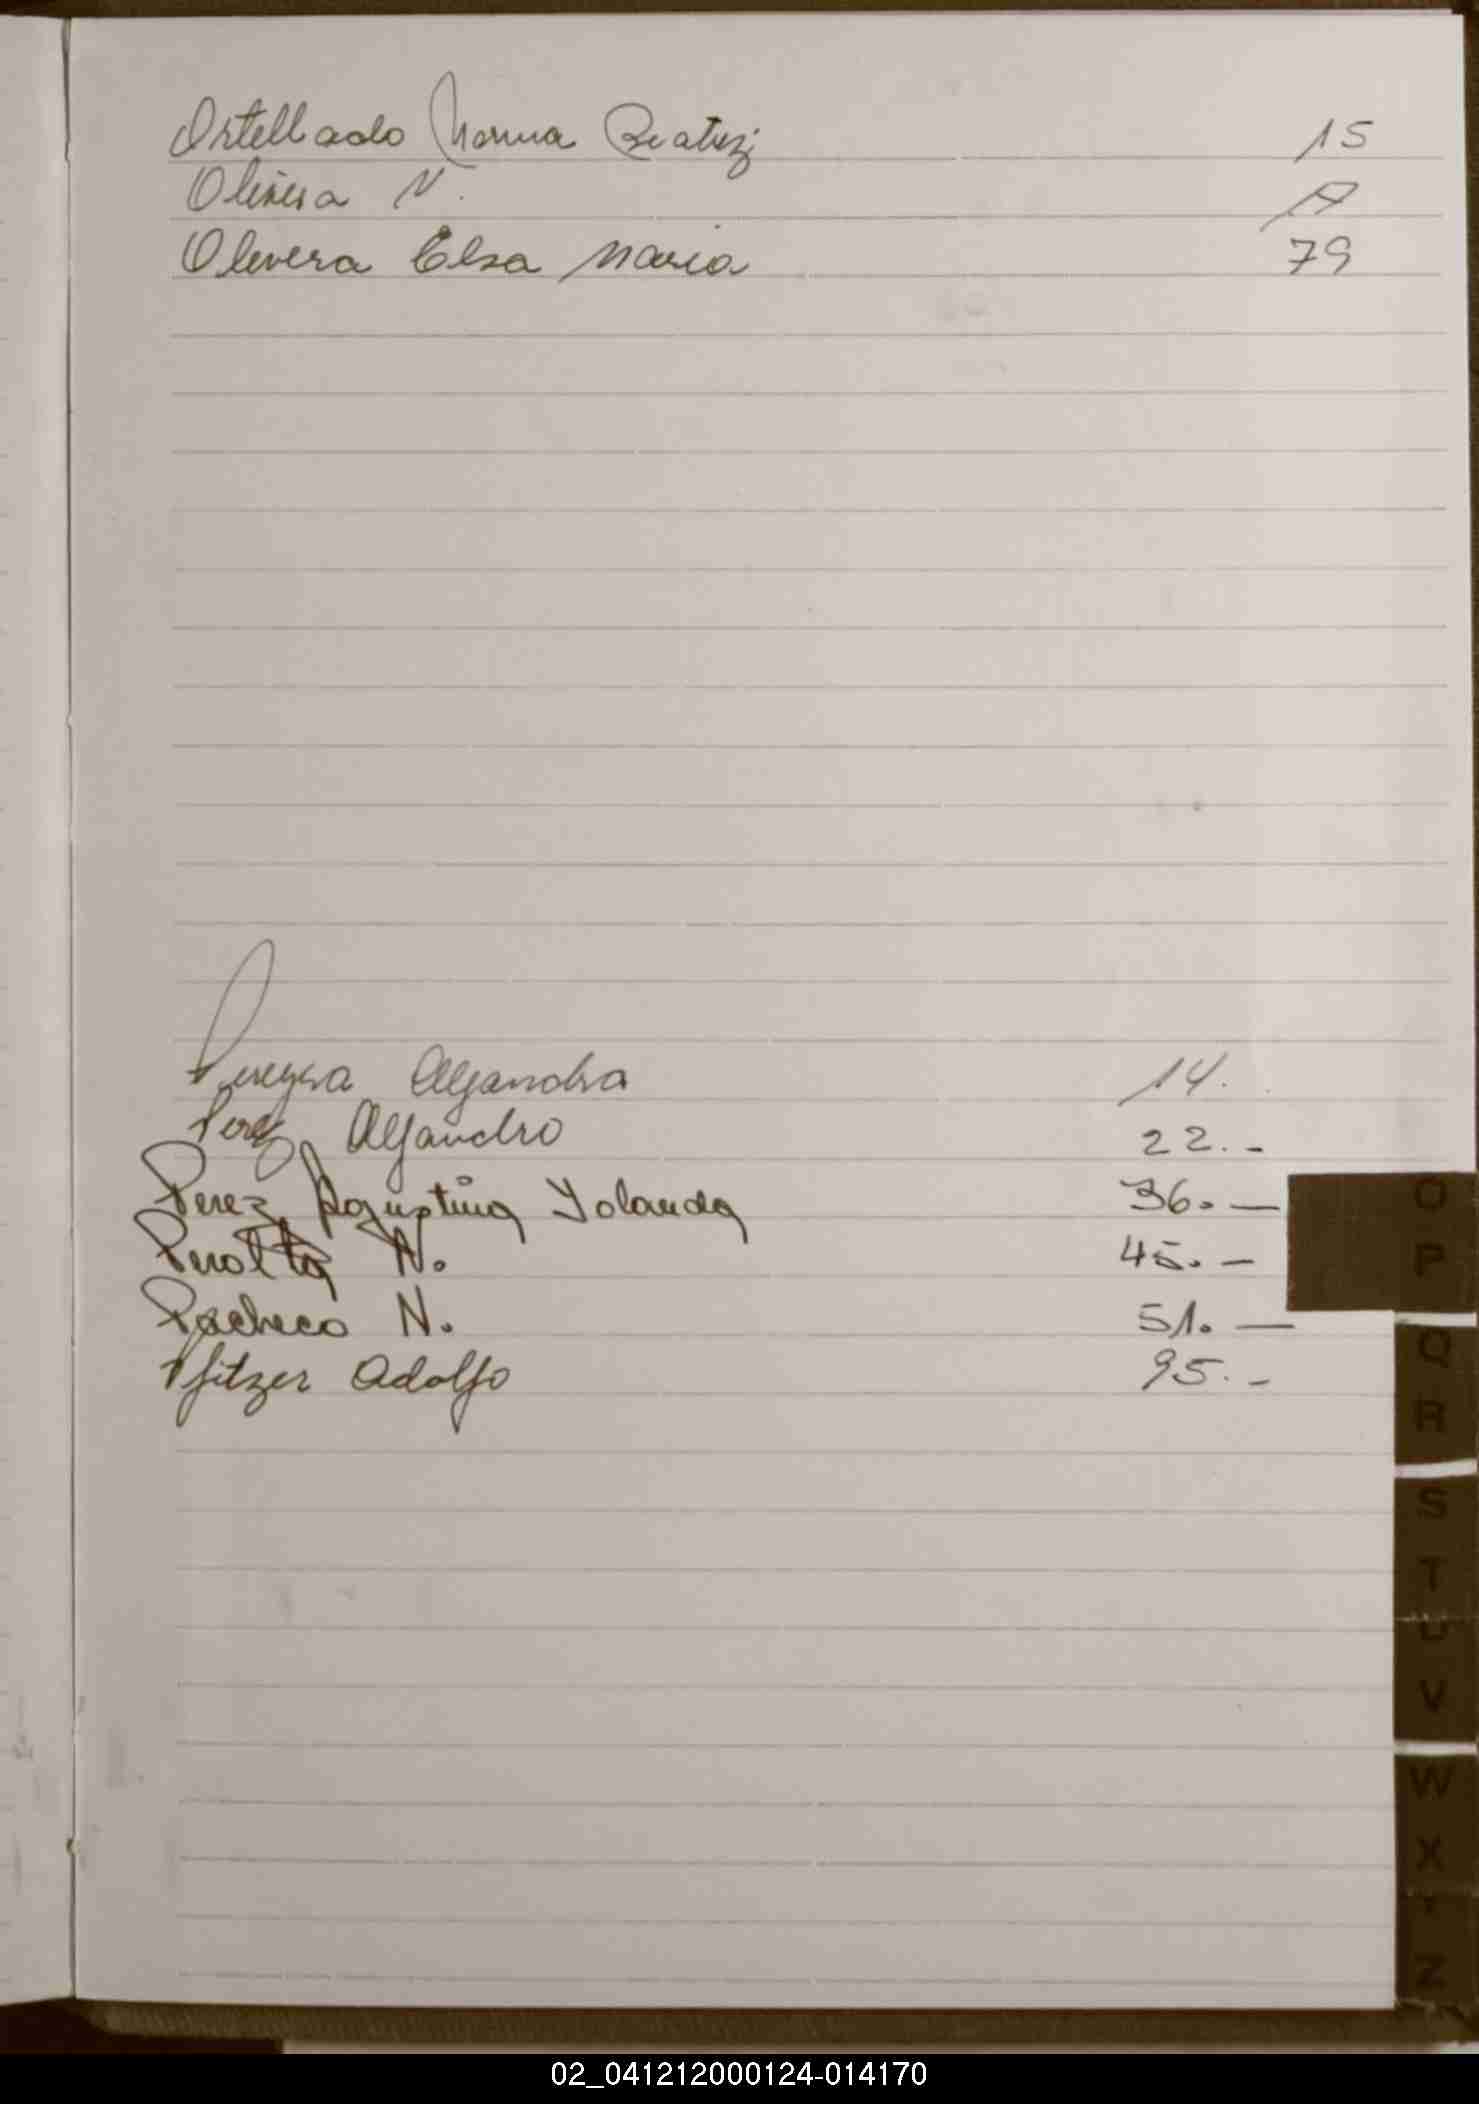 Ortellado Norma Beatriz 15
Olivera N.
Olivera Elsa Maria 79
Pereyra Alejandra 14.
Perez Alejandro 22.-
Perez Agustina Yolanda 36.—
Peralta N. 45.—
Pacheco N. 51.—
Pfitzer Adolfo 95.-
O
P
Q
R
S
T
U
V
W
X
Y
Z
02_041212000124-014170